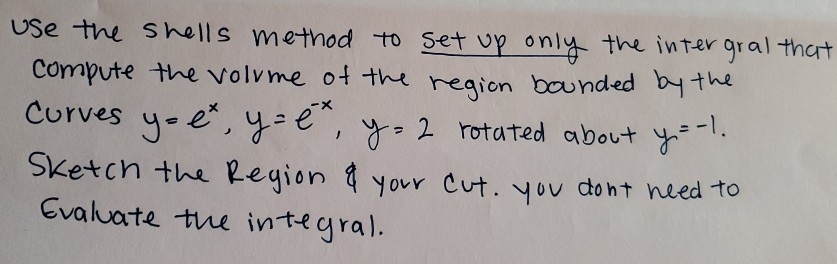 Use the shells method to set up only the intergral that
compute the volume of the region bounded by the
Curves y=eˣ, y=e⁻ˣ, y=2 rotated about y=-1.
Sketch the Region & your cut. you dont need to
Evaluate the integral.